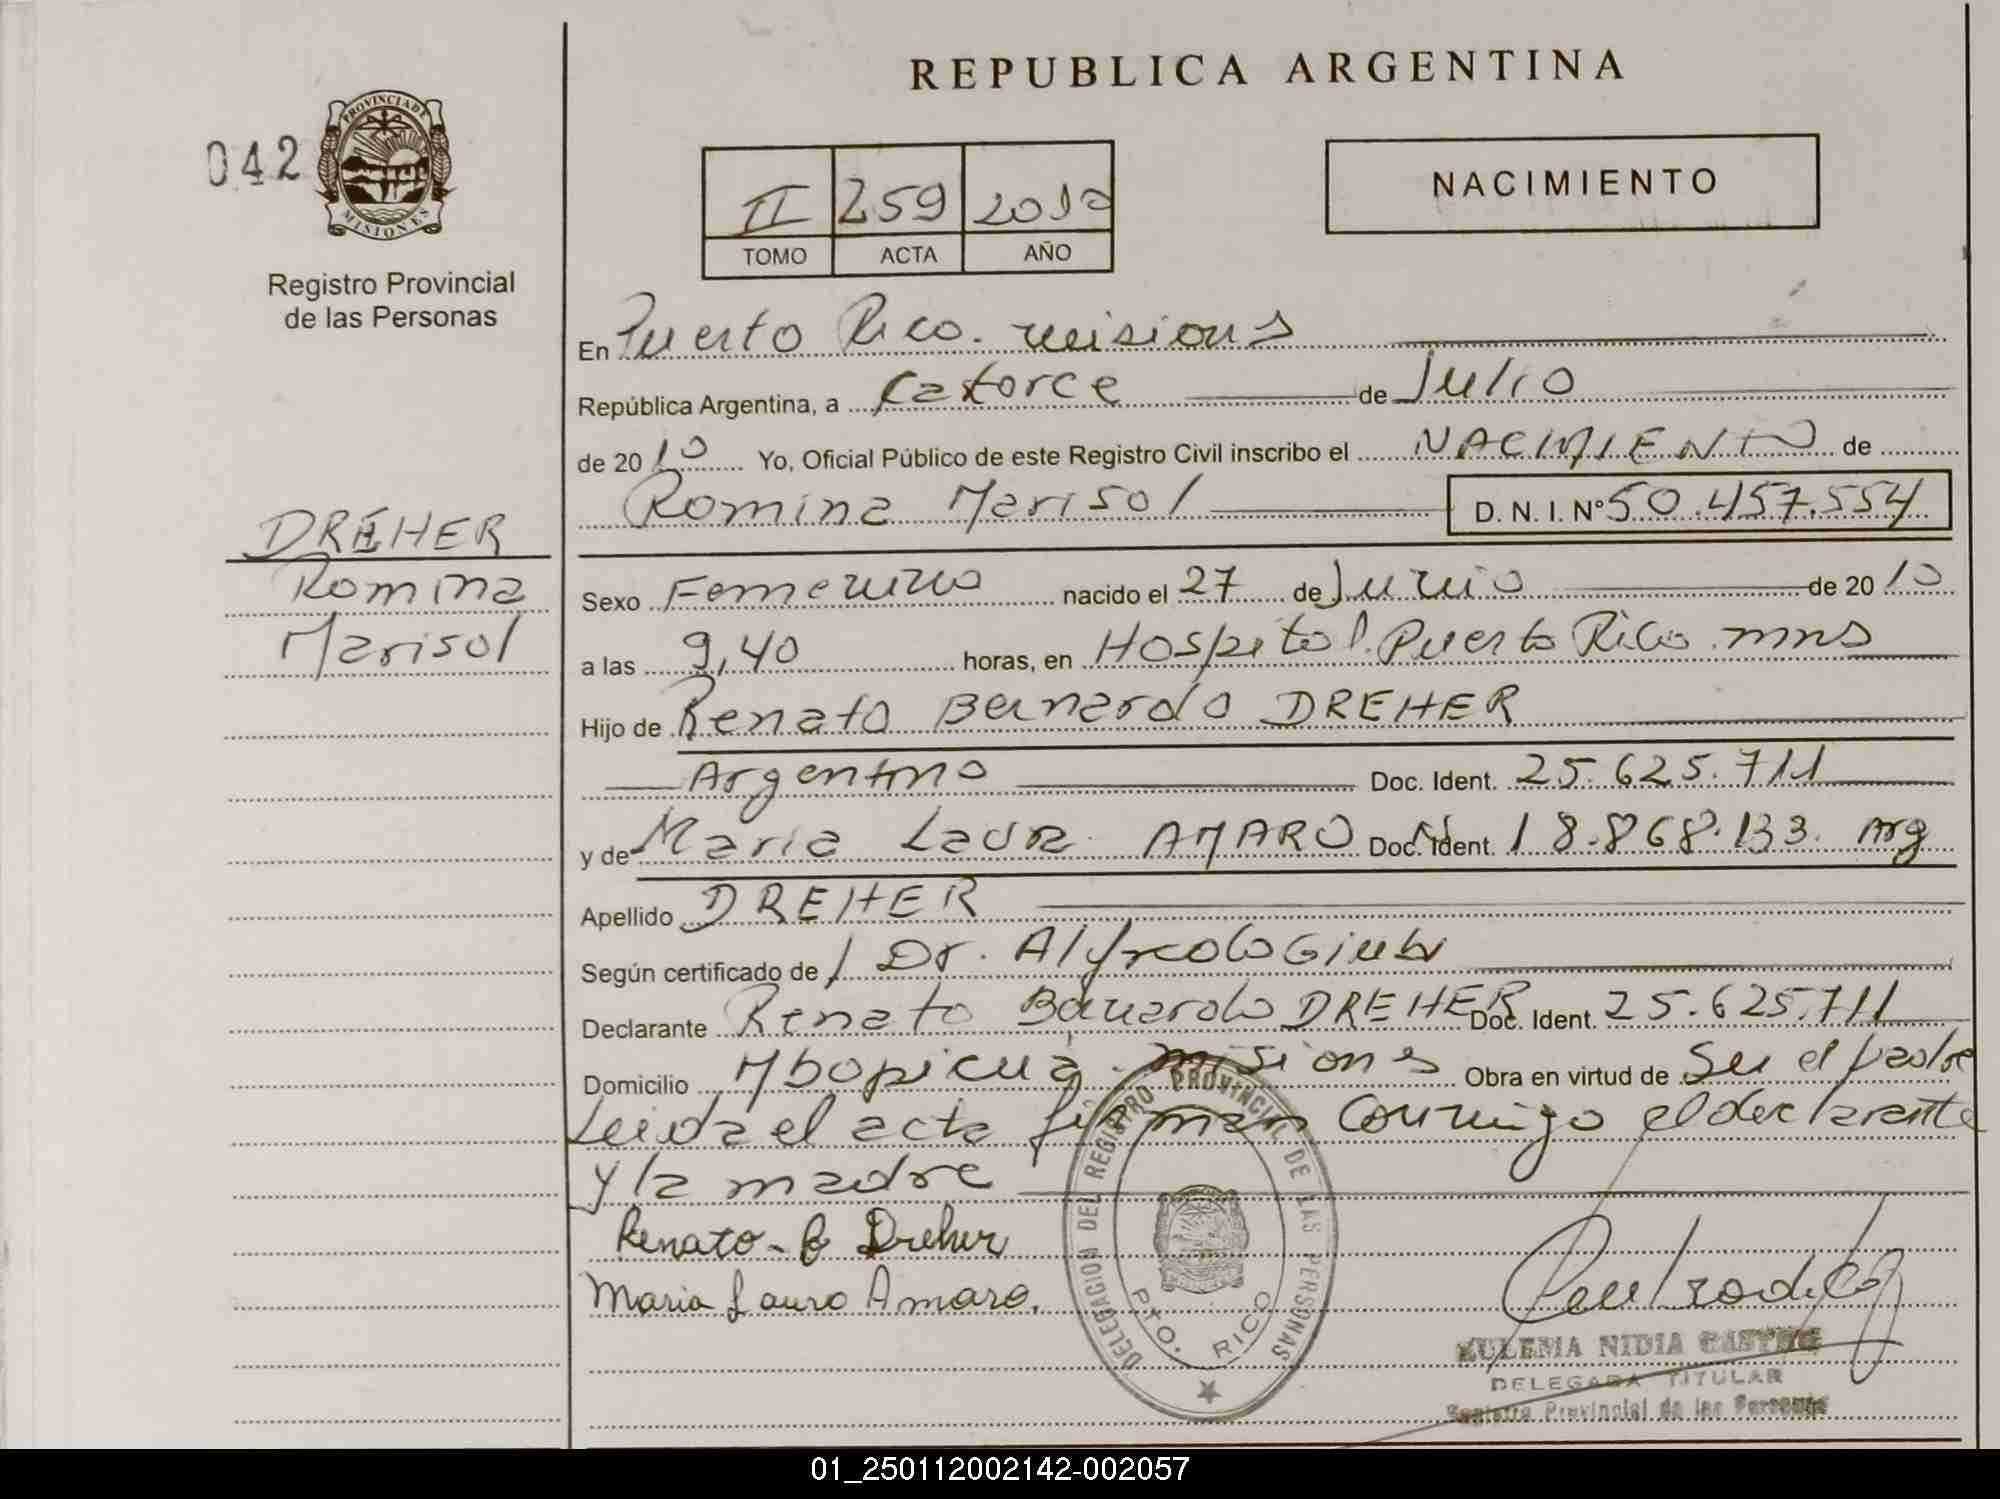 REPUBLICA ARGENTINA
042
PROVINCIA DE
MISIONES
Registro Provincial
de las Personas
II 259 2010
TOMO ACTA AÑO
NACIMIENTO
En Puerto Rico. misiones
República Argentina, a catorce de Julio
de 2010 Yo, Oficial Público de este Registro Civil inscribo el NACIMIENTO de
Romina Marisol D. N. I. Nº 50.457.554
DREHER
Romina
Marisol
Sexo Femenino nacido el 27 de Junio de 2010
a las 9,40 horas, en Hospital. Puerto Rico. mns
Hijo de Renato Bernardo DREHER
Argentino Doc. Ident. 25.625.711
y de Maria Laura AMARO Doc. Ident. 18.868.133. Arg
Apellido DREHER
Según certificado de Dr. Alfredo
Declarante Renato Bernardo DREHER Doc. Ident. 25.625.711
Domicilio Mbopicuá. misiones Obra en virtud de Ser el padre
Leida el acta firman conmigo el declarante
y la madre
Renato B Dreher
Maria Laura Amaro.
DELEGACION DEL REGISTRO PROVINCIAL DE LAS PERSONAS
PTO. RICO
ZULEMA NIDIA CASTRO
DELEGADA TITULAR
Registro Provincial de las Personas
01_250112002142-002057